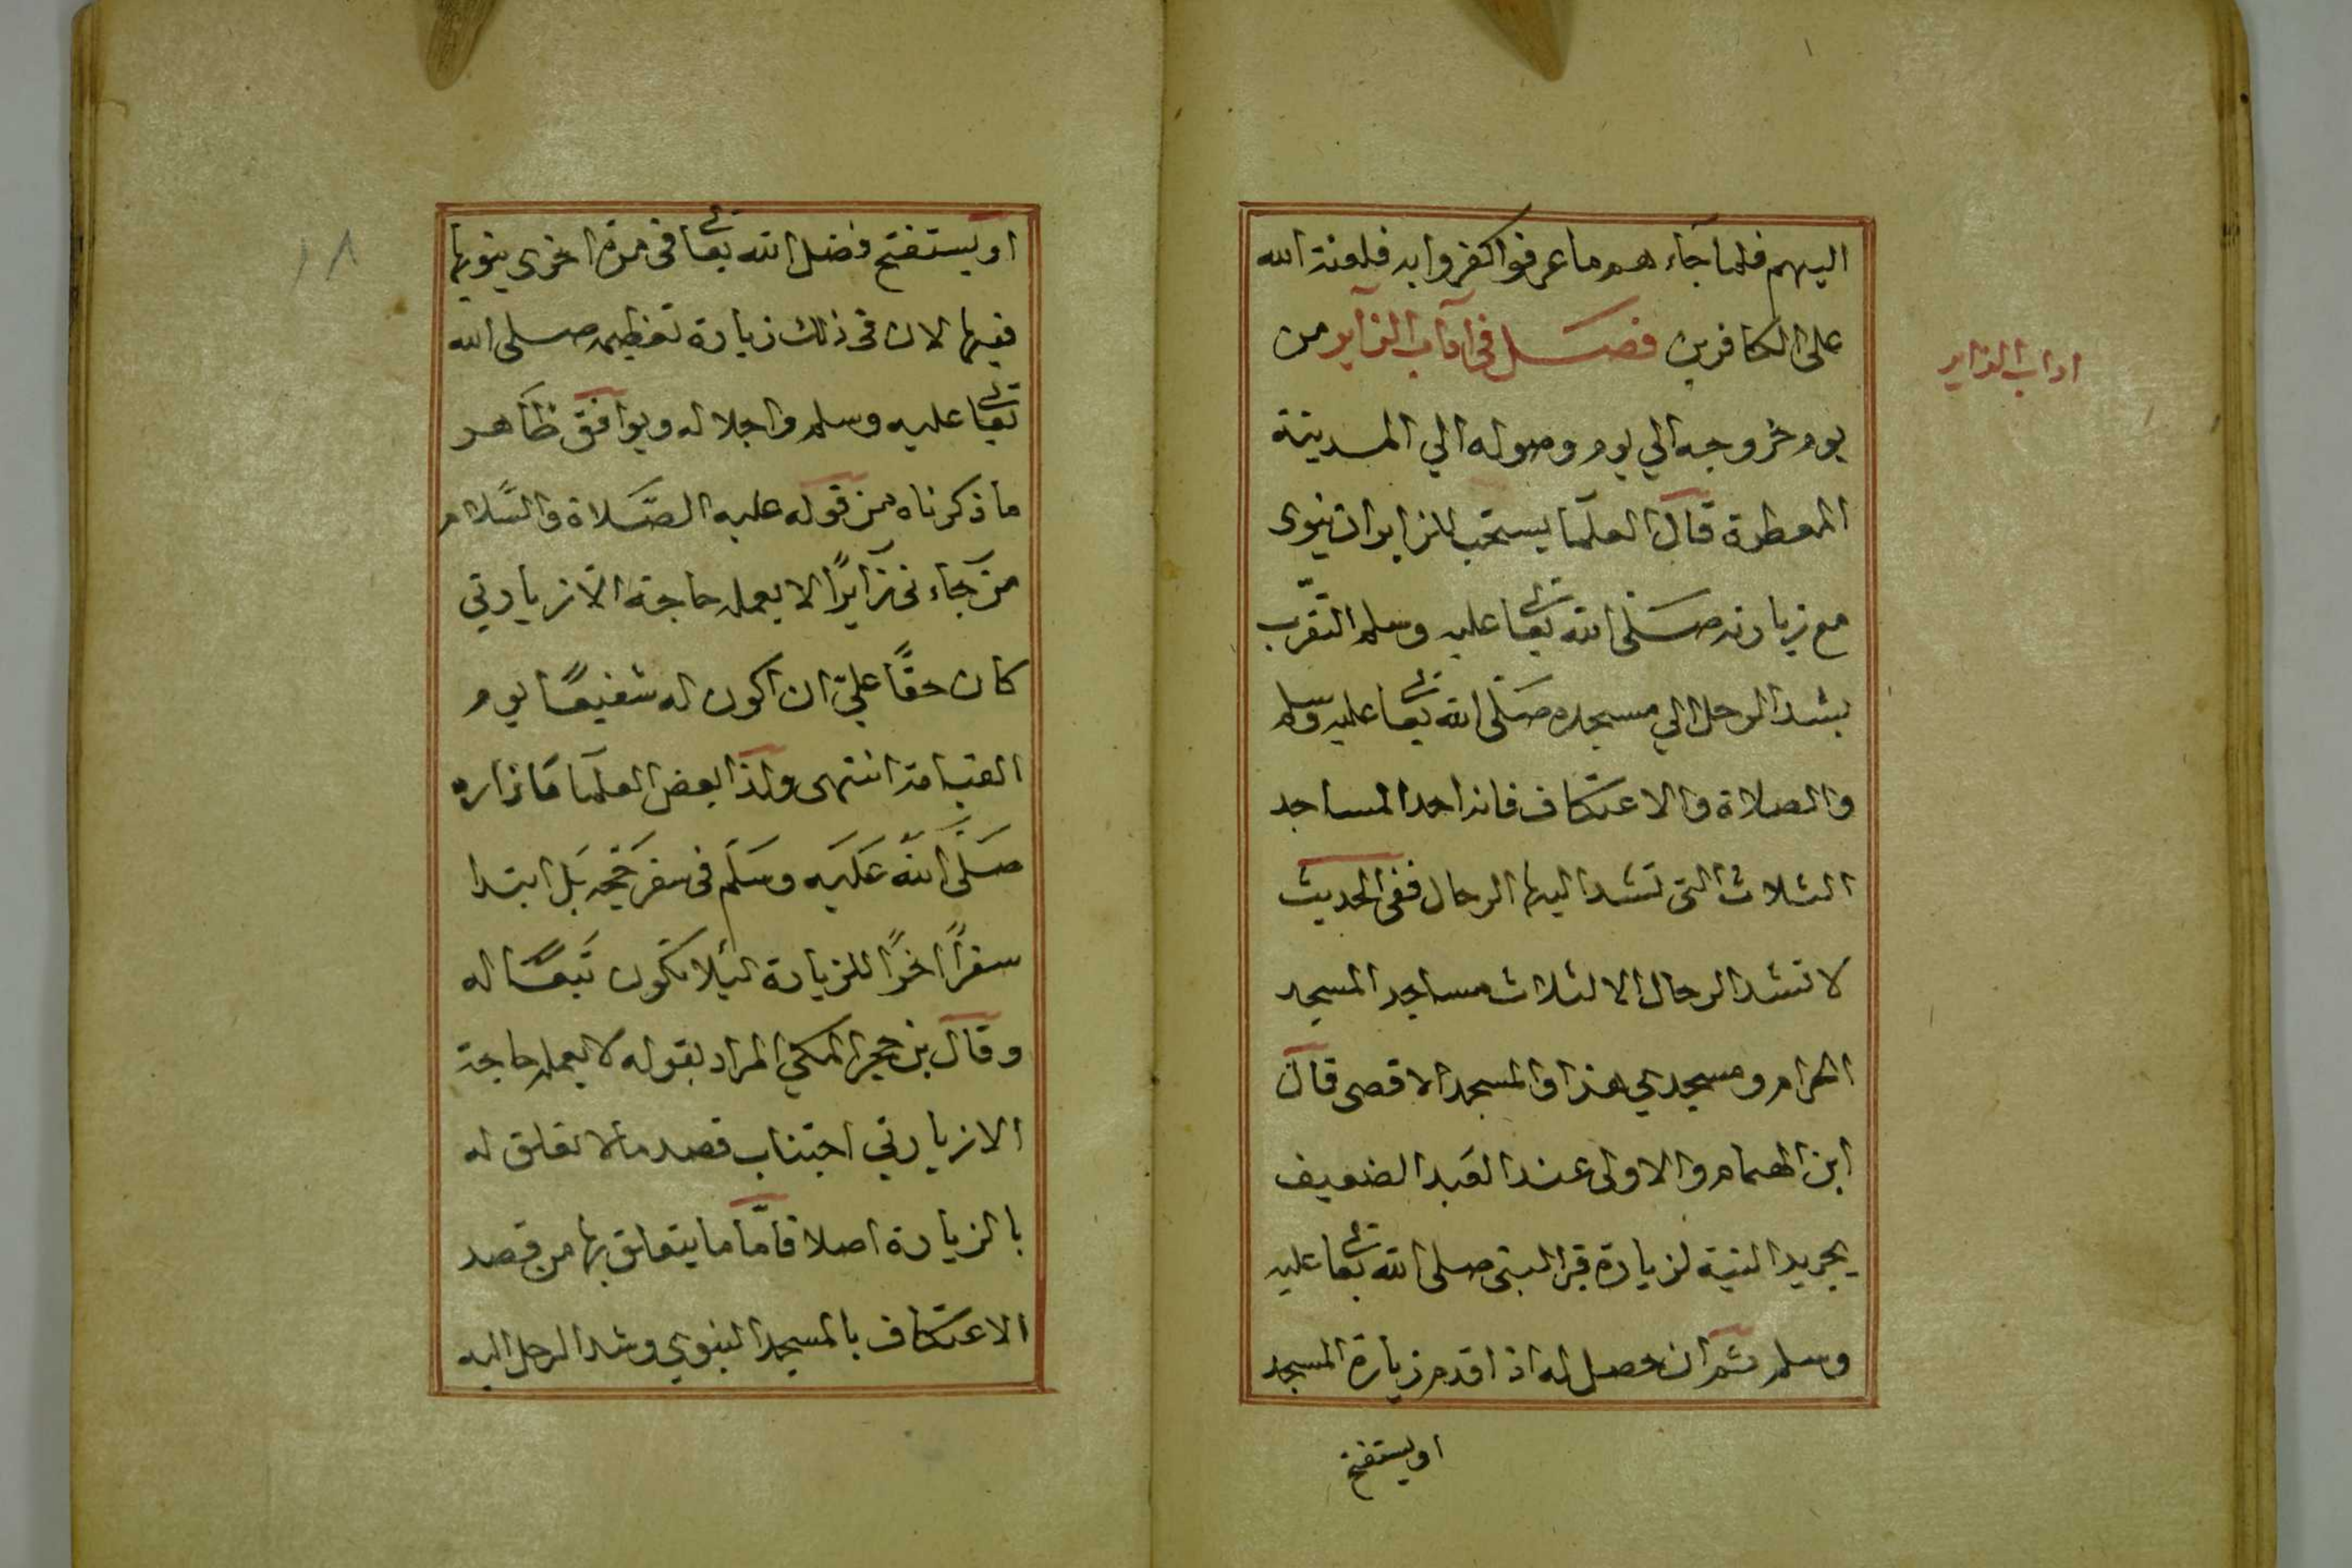 اليهم فلما جاءهم ما عرفوا كفروا به فلعنة الله
على الكافرين فصل في آداب الزاير من
اداب الزاير
يوم خروجه الي يوم وصوله الي المدينة
المعطرة قال العلما يستحب للزاير ان ينوى
مع زيارته صلى الله تعا عليه وسلم التقرب
بشد الرحل الي مسجده صلى الله تعا عليه وسلم
والصلاة والاعتكاف فانه احد المساجد
الثلاث التى تشد اليها الرحال ففى الحديث
لا تشد الرحال الا لثلاث مساجد المسجد
الحرام ومسجدي هذا والمسجد الاقصى قال
ابن الهمام والاولى عند العبد الضعيف
تجريد النية لزيارة قبر النبى صلى الله تعا عليه
وسلم ثم ان حصل له اذا قدم زيارة المسجد
او يستفتح
١٨
او يستفتح فضل الله تعا فى مرة اخرى ينويها
فيها لان فى ذلك زيادة تعظيمه صلى الله
تعا عليه وسلم واجلاله ويوافق ظاهر
ما ذكرناه من قوله عليه الصلاة والسلام
من جاءنى زايرًا لا يعمله حاجة الا زيارتي
كان حقًا عليّ ان اكون له شفيعًا يوم
القيامة انتهى ولذا بعض العلما ما زاره
صلى الله عليه وسلم فى سفر حجه بل ابتدا
سفرًا اخرًا للزيارة ليلا تكون تبعًا له
وقال بن حجر المكي المراد بقوله لا يعمله حاجة
الا زيارتي اجتناب قصد ما لا تعلق له
بالزيارة اصلا فامّا ما يتعلق بها من قصد
الاعتكاف بالمسجد النبوي وشد الرحل اليه